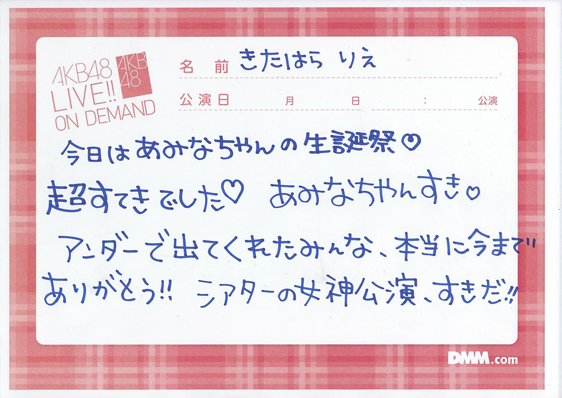 AKB48
LIVE!!
ON DEMAND
AKB
48
名 前 きたはら りえ
公演日 月 日 : 公演
今日はあみなちゃんの生誕祭♡
超すてきでした♡ あみなちゃんすき♡
アンダーで出てくれたみんな、本当に今まで
ありがとう!! シアターの女神公演、すきだ!!
DMM.com